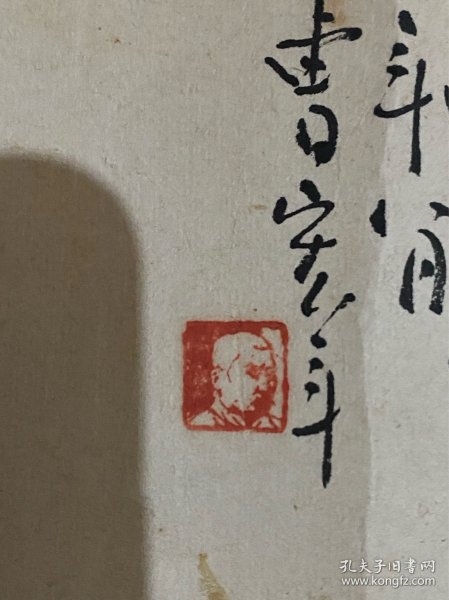 年八月
曹年
孔夫子旧书网
www.kongfz.com